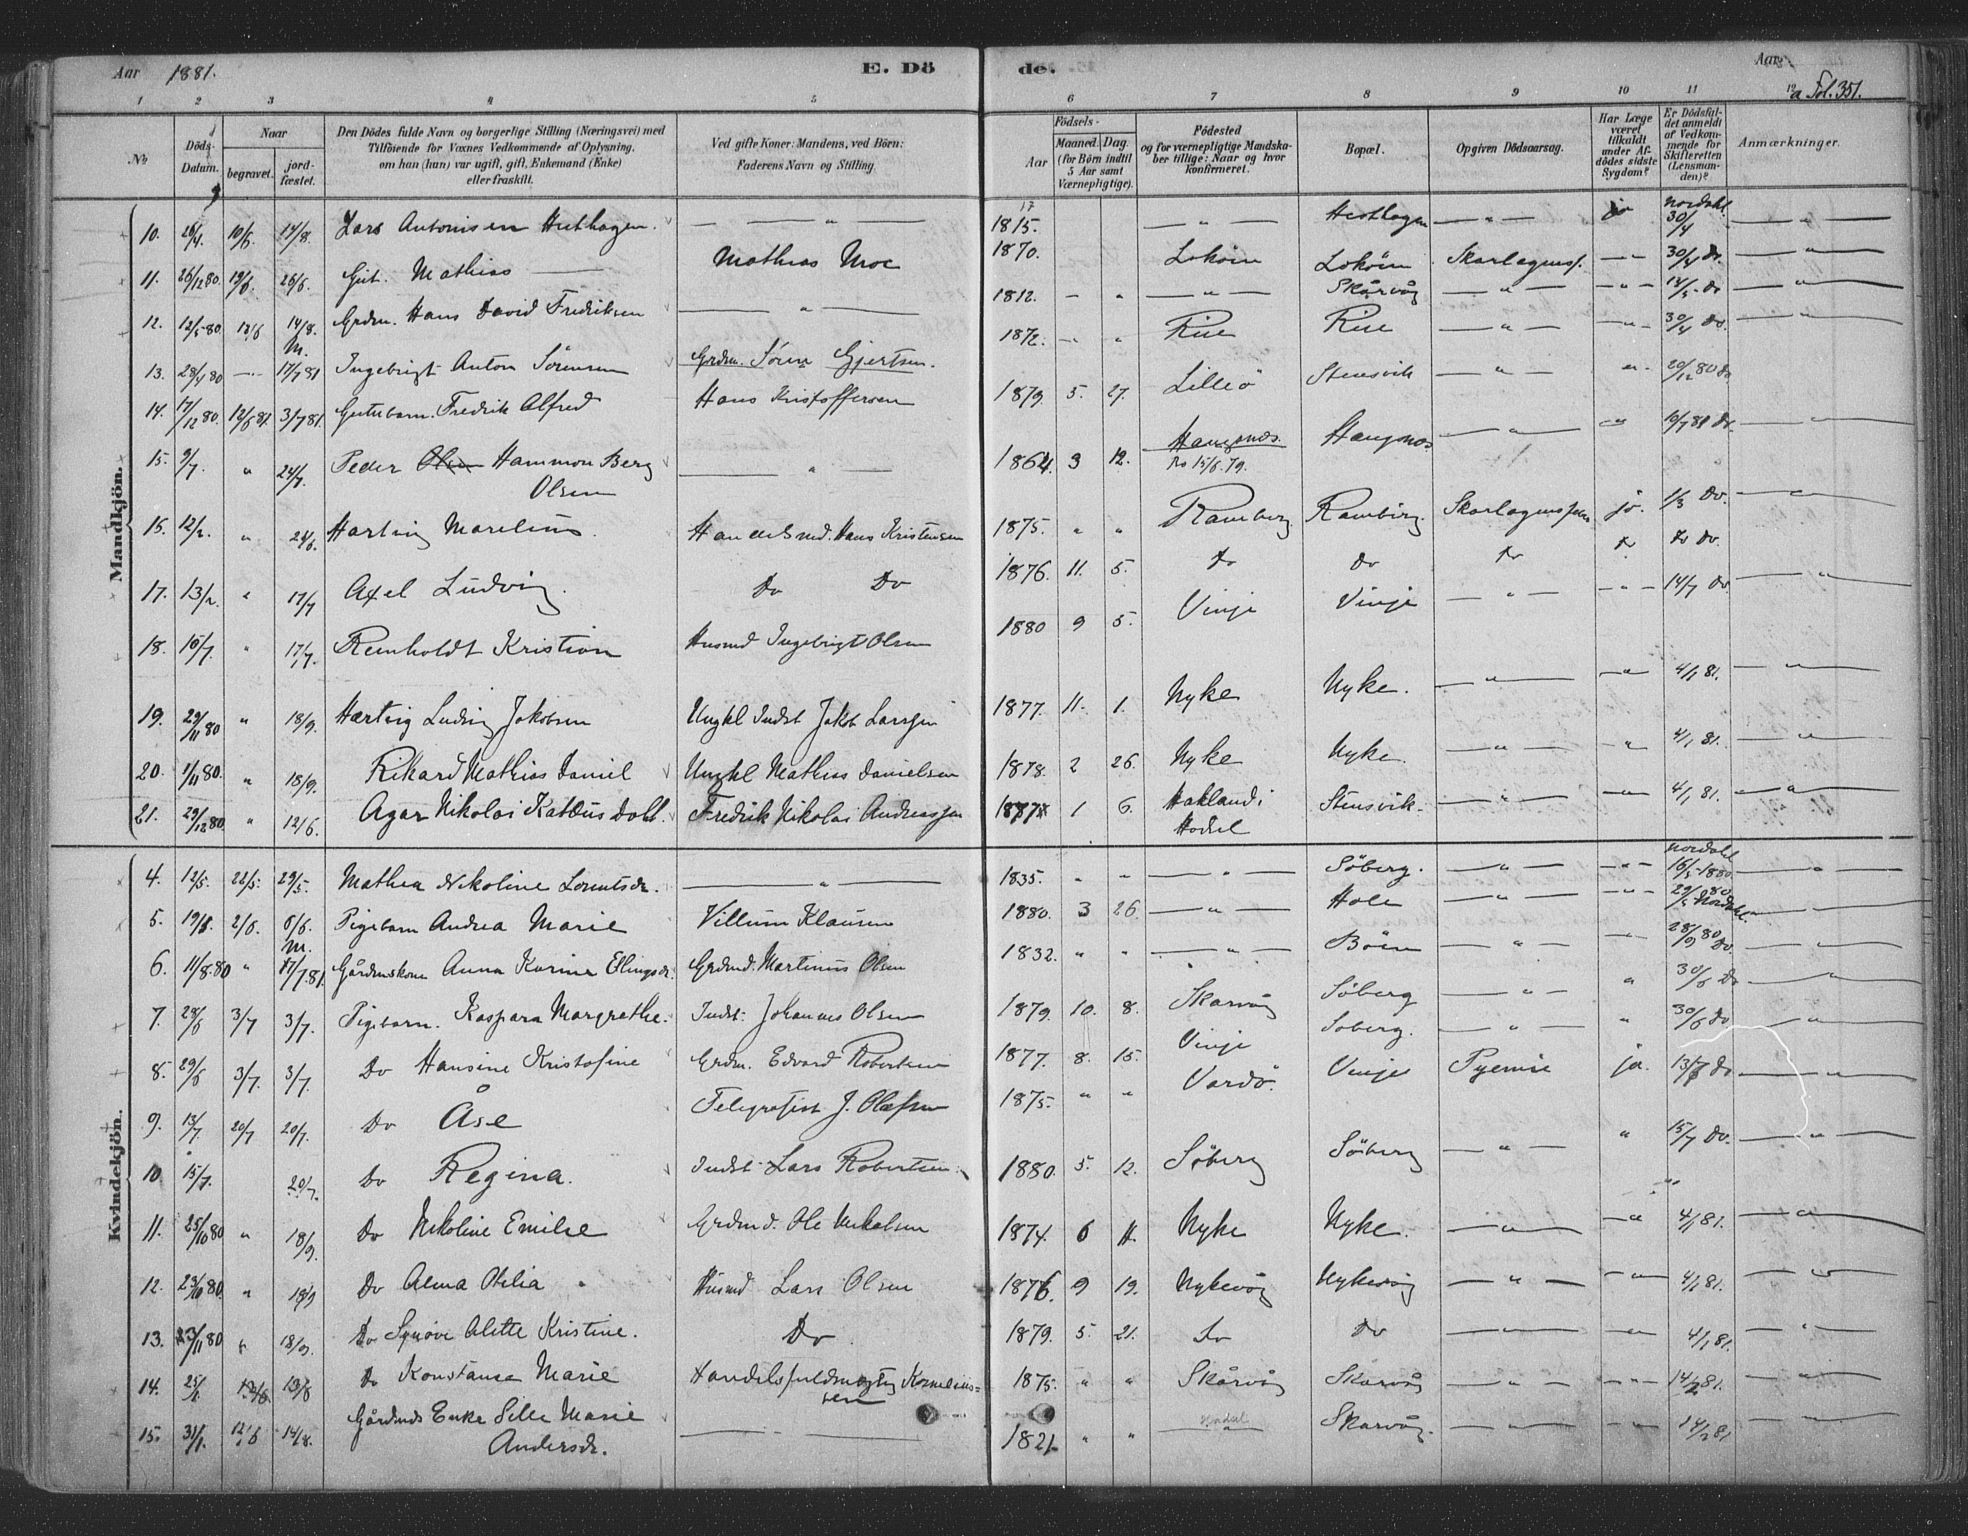 Aar 1881. E. Dö de. Aar
Fol. 351.
1 2 3 4 5 6 7 8 9 10 11 12
No
Döds-Datum.
Naar
begravet. jordfæstet.
Den Dödes fulde Navn og borgerlige Stilling (Næringsvei) med
Tilföiende for Voxnes Vedkommende af Oplysning,
om han (hun) var ugift, gift, Enkemand (Enke)
eller fraskilt.
Ved gifte Koner: Mandens, ved Börn:
Faderens Navn og Stilling.
Födsels-
Aar Maaned. Dag.
(for Börn indtil
5 Aar samt
Værnepligtige).
Födested
og for værnepligtige Mandskaber tillige: Naar og hvor
konfirmeret.
Bopæl.
Opgiven Dödsaarsag.
Har Læge
været
tilkaldt
under Afdödes sidste
Sygdom?
Er Dödsfaldet anmeldt
af Vedkommende for
Skifteretten
(Lensmanden)?
Anmærkninger.
Mandkjön.
10. 26/4. 10/6. 14/8. Lars Antonisen Hesthagen. — " — 1815. — " — Hesthagen — " — Nordahl 30/4 — " —
11. 26/12 80 19/6 26/6. Gut. Mathias — Mathias Moe 1870. Loköin Loköin Skarlagensf. — " — 30/4 Do — " —
12. 12/5 80 12/6 14/8. Grdm. Hans David Fredriksen — " — 1812. — " — " — Skårvåg — " — — " — 14/5 Do — " —
13. 28/4 80 — M. 17/7 81 Ingebrigt Anton Sörensen Grdm. Sören Gjertsen. 1872. — " Rise Rise — " — — " — 30/4 Do. — " —
14. 17/12 80. 12/6 81. 3/7 81. Guttebarn. Fredrik Alfred Hans Kristoffersen 1879. 5. 27. Lilleö Stensvik — " — " 20/12 80 Do
15. 9/7. " 24/7. Peder Hammon Berg Olsen — " — 1864. 3 12. Haugsnæs. 15/6. 79. Haugsnæs. — " — " 10/7 81 Do. — " —
15. 12/2. " 24/6. Hartvig Marelius Handelsmd. Hans Kristensen 1875. " " Ramberg Ramberg. ja. 1/3 Do. — " —
17. 13/2. " 17/7 Axel Ludvig. Do Do 1876. 11. 5. Do Do Do Do Do Do.
18. 10/7. " 17/7. Reinholdt Kristian Husmd Ingebrigt Olsen 1880 9 5. Vinje Vinje — " — — " — 14/7 Do — " —
19. 29/11 80 " 18/9. Hartvig Ludvig Jakobsen Ungkl Indst Jakob Larssen 1877. 11. 1. Nyke Nyke. — " — — " — 4/1 81. — " —
20. 1/11 80. " 18/9. Rikard Mathias Daniel Ungkl Mathias Danielsen 1878. 2 26. Nyke Nyke. — " — " 4/1 81. — " —
21. 29/12 80 " 12/6. Agar Nikolai Dahl. Fredrik Nikolai Andreassen 1 6. Hakland i Hadsel Stensvik. — " — — " — 4/1 81. — " —
Kvindekjön.
4. 12/5. 22/5. 29/5. Mathea Nikoline Lorentsdr. — " — 1835. " " — " — Söberg. — " — — " — Nordahl 16/5 1880. — " —
5. 2/6. 6/6. Pigebarn Andrea Marie Villum Klausen 1880. 3 26. — " — Hole — " — — " — Nordahl. — " —
6. 11/8. 80 " M. 17/7 81. Gårdmskone Anna Karina Ellingsdr. Grdmd. Martinus Olsen 1832. " " — " — Böen — " — — " — 28/9 80 Do. — " —
7. 28/6 3/7 3/7. Pigebarn. Kaspara Margrethe. Indst. Johannes Olsen 1879. 10. 8. Skarvåg Söberg — " — " 30/6 Do — " —
8. 29/6 3/7. 3/7. Do Hansine Kristofine Grdm. Edvard Robertsen 1877. 8. 15. Vinje Soberg. — " — " 30/6 Do — " —
9. 13/7. 20/7 20/7. Do Åse Telegrafist J. Olafsen 1875. " " Vardö. Vinje Pyemie ja. 13/7 Do — " —
10 15/7. 20/7. Do Regina. Indst. Lars Robertsen. 1880. 5. 12. Söberg Söberg — " — " 15/7 Do. — " —
11. 25/10 80 " 18/9. Do Nikoline Emilie Grdmd. Ole Nikolsen 1874. 6 11. Nyke Nyke. — " — — " 4/1 81. — " —
12. 23/10 80. " 18/9 Do Alma Otilia Husmd Lars Olsen 1876. 9 19. Nykevåg Nykevåg — " — — " — 4/1 81. — " —
13. 23/11 80 " 18/9. Do Synöve Alette Kristine. Do. 1879. 5. 21. Do Do — " — 4/1 81. — " —
14. 13/8 Do Konstanse Marie Handelsfuldmægtig Korneliussen 1875. " " Skårvåg Skarvåg — " — — " — 14/2 81. — " —
15. 31/1. 12/6 14/8. Gårdmds Enke Sille Marie Andersdr. — " — 1821. " " Skarvåg. — " — 14/2 81 — " —